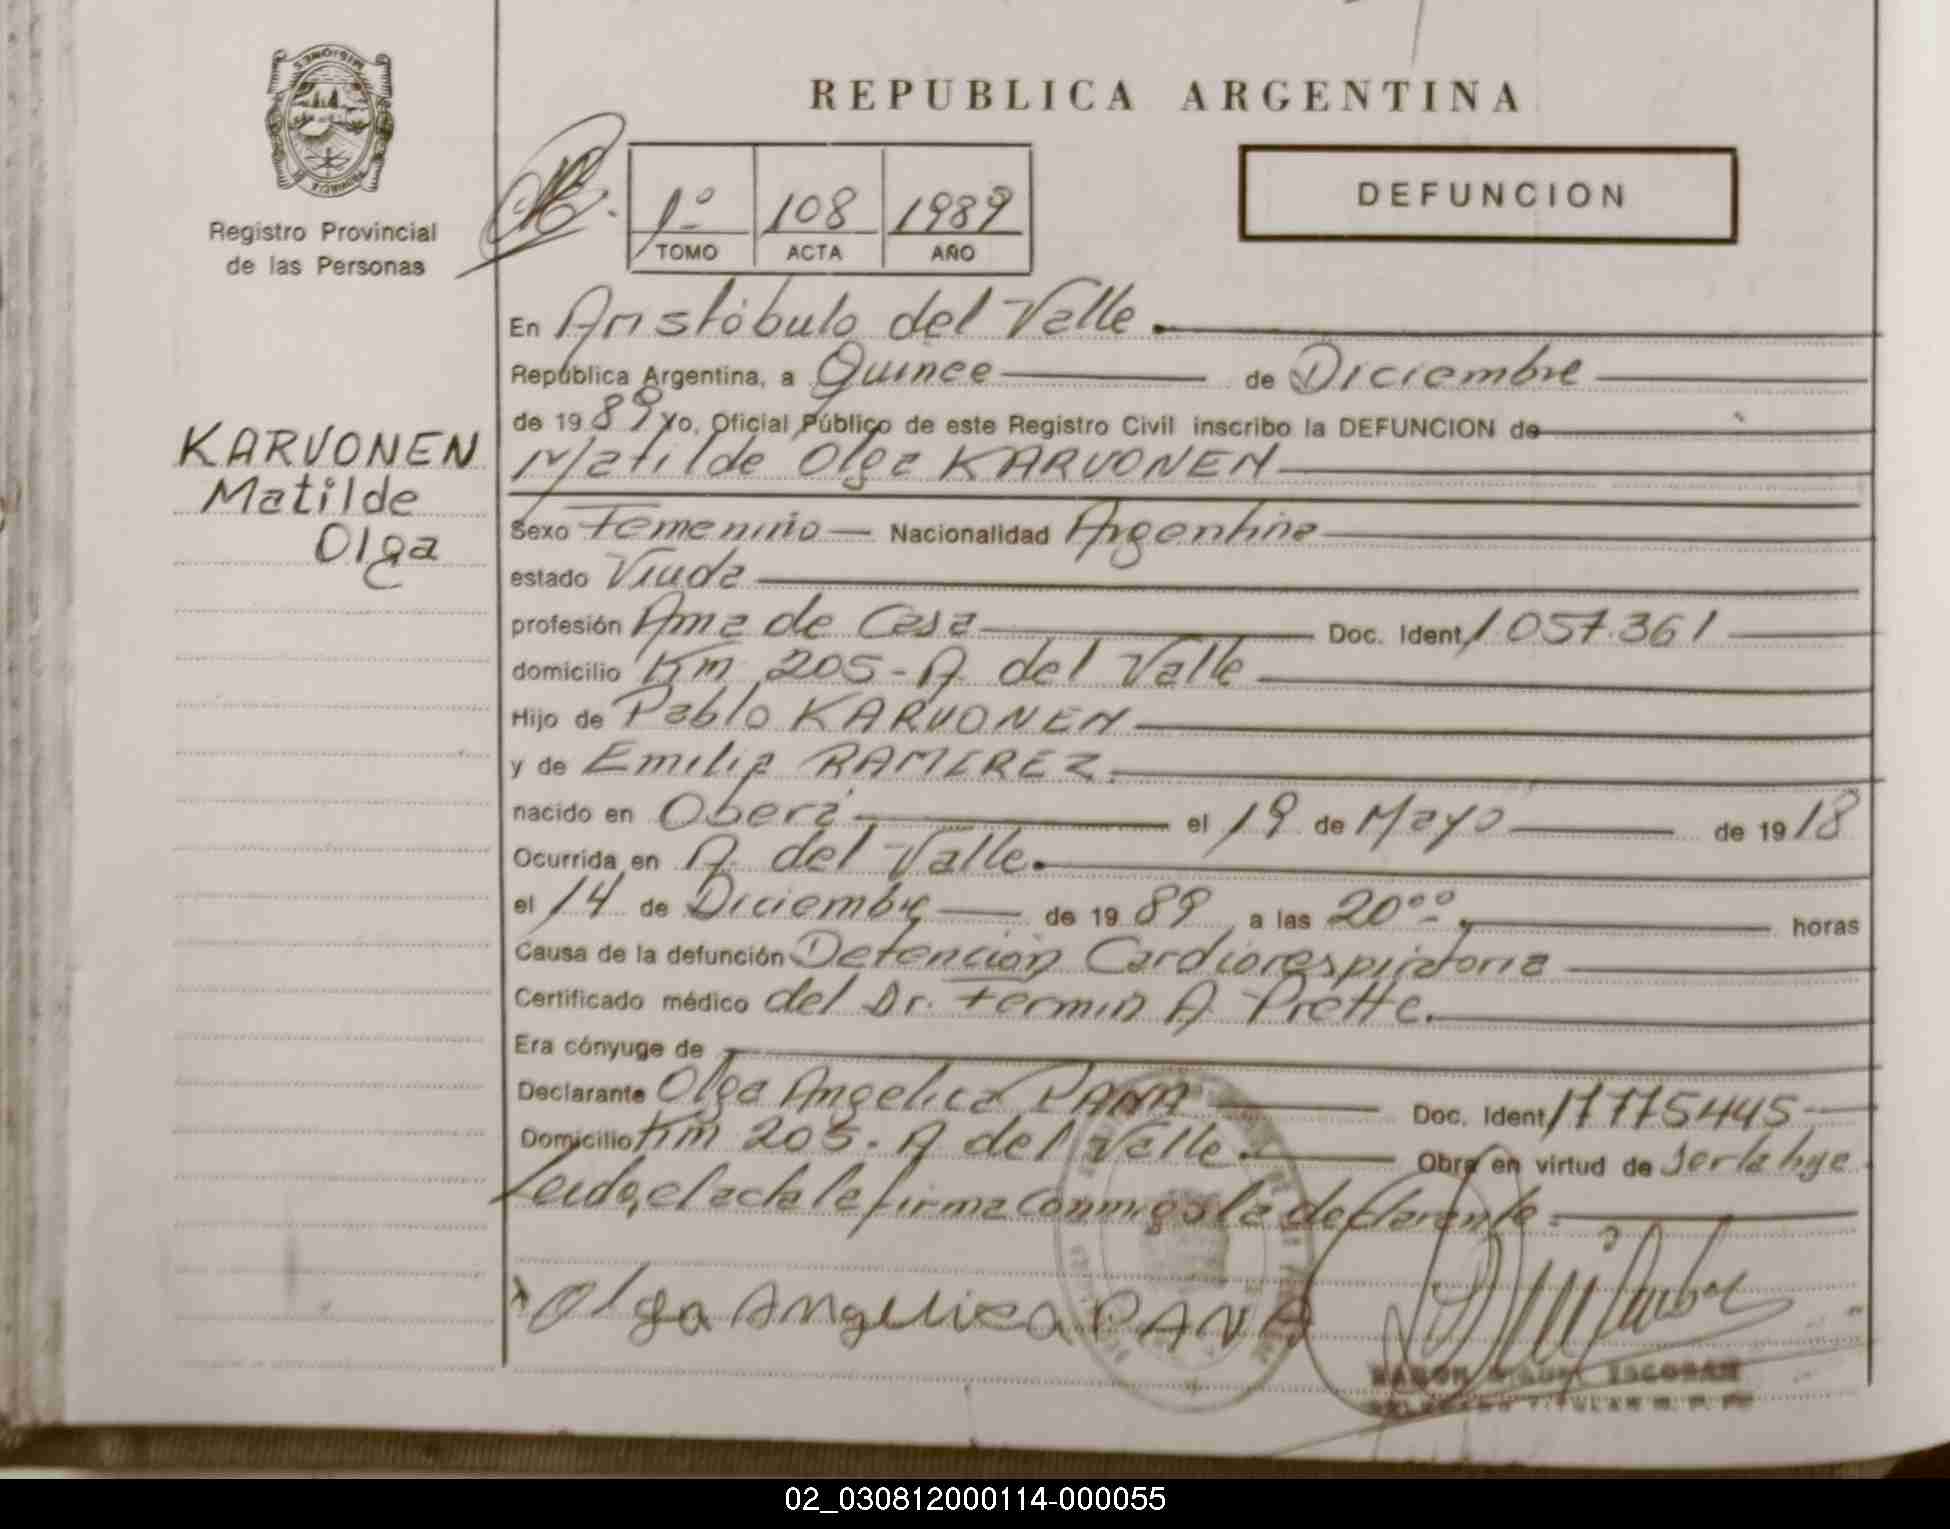 MISIONES
PROVINCIA
Registro Provincial
de las Personas
REPUBLICA ARGENTINA
1º 108 1989
TOMO ACTA AÑO
DEFUNCION
En Aristóbulo del Valle
República Argentina, a Quince de Diciembre
de 1989 Yo, Oficial Público de este Registro Civil inscribo la DEFUNCION de
KARVONEN
Matilde
Olga
Matilde Olga KARVONEN
Sexo Femenino Nacionalidad Argentina
estado Viuda
profesión Ama de Casa Doc. Ident. 1.057.361
domicilio Km 205 - A. del Valle
Hijo de Pablo KARVONEN
y de Emilia RAMIREZ
nacido en Oberá el 19 de Mayo de 1918
Ocurrida en A. del Valle.
el 14 de Diciembre de 1989 a las 20⁰⁰ horas
Causa de la defunción Detención Cardiorespiratoria
Certificado médico del Dr. Fermin A. Prette.
Era cónyuge de
Declarante Olga Angelica PANA Doc. Ident. 17775445
Domicilio Km 205 - A del Valle. Obra en virtud de ser la hija
Leida, el acta la firma conmigo la declarante.
Olga Angelica PANA
RAMON ESCOBAR
TITULAR R. P. P.
02_030812000114-000055